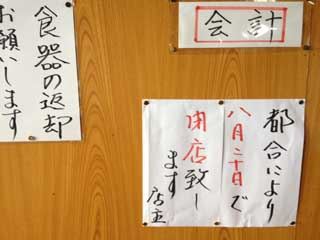 会計
食器の返却
お願いします
都合により
八月二十日で
閉店致し
ます
店主